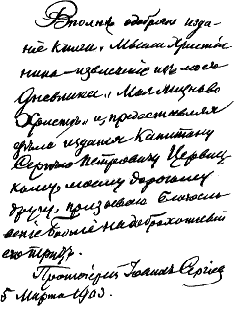 Вполнѣ одобряю изда-
ніе книги „Мысли Христіа-
нина" – извлеченіе изъ моего
Дневника „Моя жизнь во
Христѣ" и, предоставляя
дѣло изданія Капитану
Сергѣю Петровичу Цервиц-
кому, моему дорогому
другу, призываю благосло-
веніе Божіе на доброхотный
его трудъ.
Протоіерей Іоаннъ Сергіевъ
5 Марта 1903.